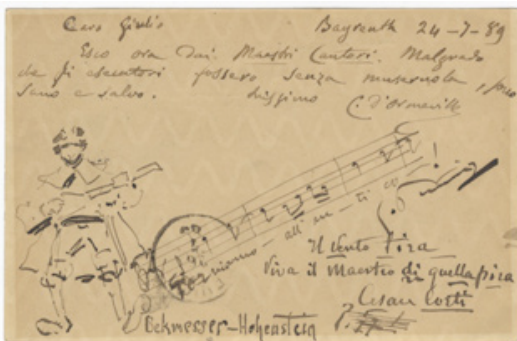 Caro Giulio
Bayreuth 24-7-89
Esco ora dai Maestri Cantori. Malgrado
che gli esecutori fossero senza museruola,
sano e salvo.
C. d'Ormeville
Torniamo - all'an - ti - co - !
Il vento tira
Viva il Maestro di quella pira
Cesare Corti
Bekmesser-Hohenstein